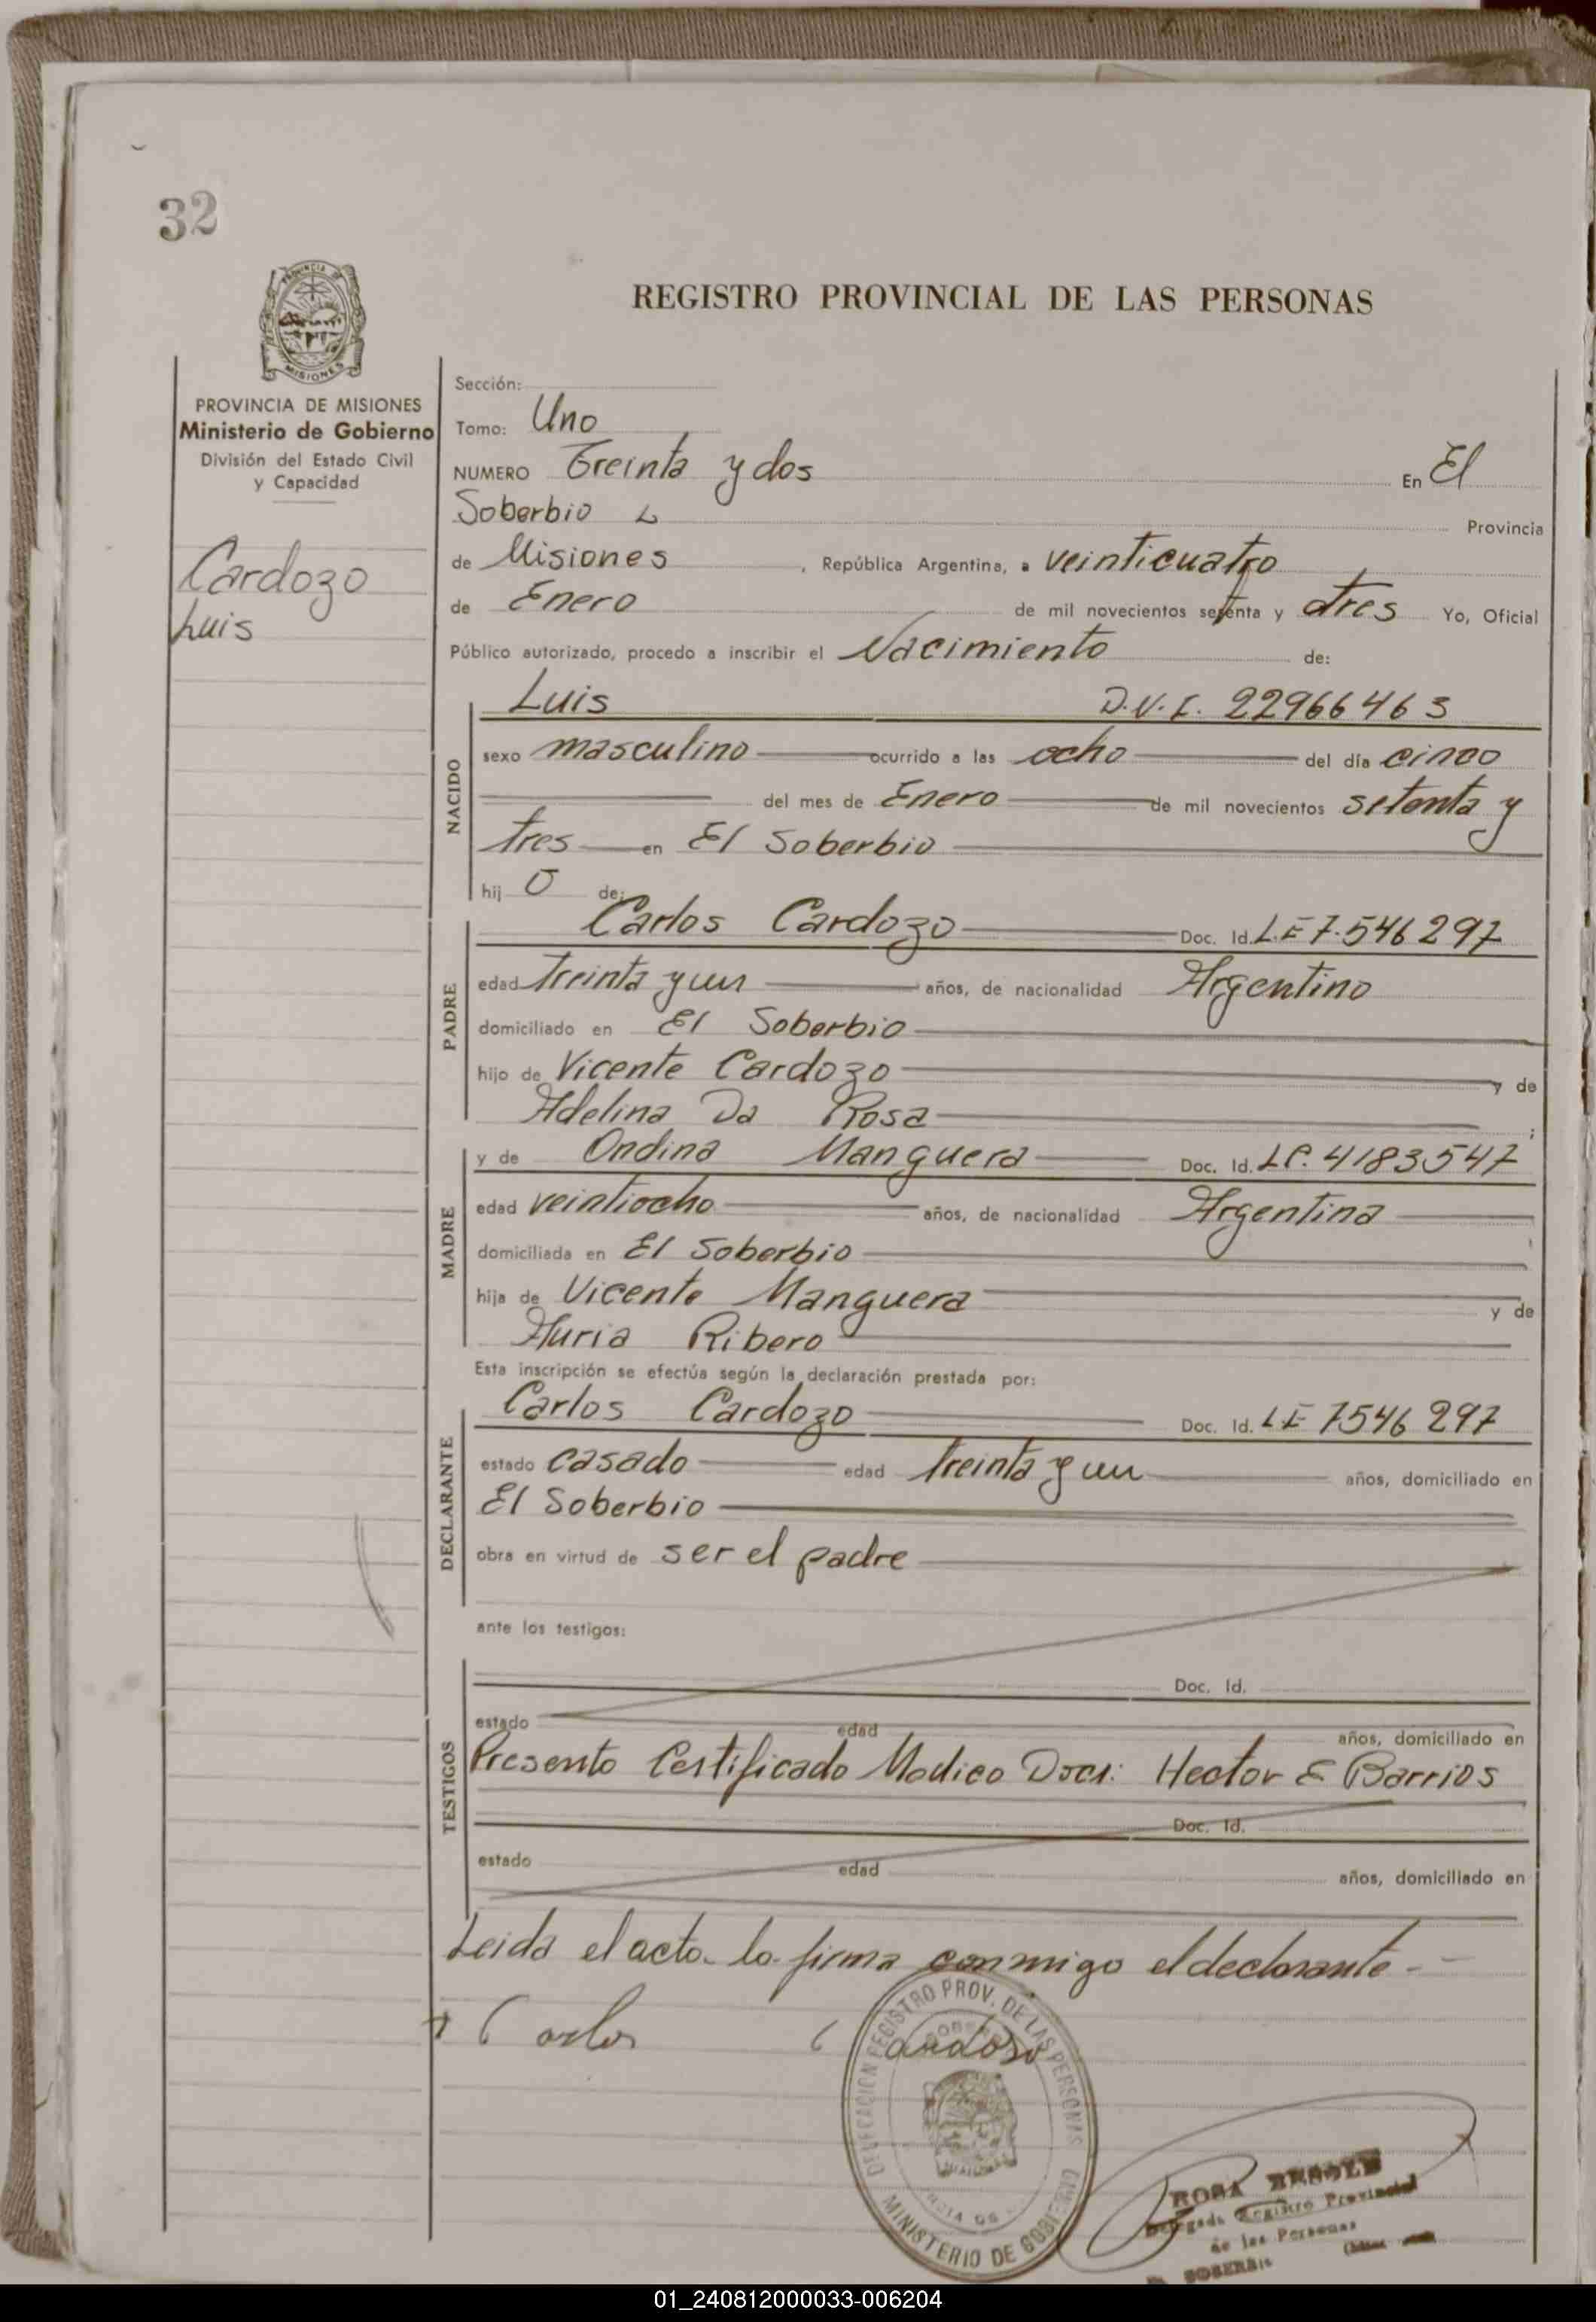 32
PROVINCIA DE
MISIONES
REGISTRO PROVINCIAL DE LAS PERSONAS
PROVINCIA DE MISIONES
Ministerio de Gobierno
División del Estado Civil
y Capacidad
Cardozo
Luis
Sección:
Tomo: Uno
NUMERO Treinta y dos En El
Soberbio Provincia
de Misiones , República Argentina, a veinticuatro
de Enero de mil novecientos setenta y tres Yo, Oficial
Público autorizado, procedo a inscribir el Nacimiento de:
NACIDO
Luis D.N.I. 22966463
sexo masculino ocurrido a las ocho del día cinco
del mes de Enero de mil novecientos setenta y
tres en El Soberbio
hij o de:
PADRE
Carlos Cardozo Doc. Id. L.E 7.546297
edad treinta y un años, de nacionalidad Argentino
domiciliado en El Soberbio
hijo de Vicente Cardozo y de
Adelina Da Rosa ;
MADRE
y de Ondina Manguera Doc. Id. LC. 4183547
edad veintiocho años, de nacionalidad Argentina
domiciliada en El Soberbio
hija de Vicente Manguera y de
Ribero
Esta inscripción se efectúa según la declaración prestada por:
DECLARANTE
Carlos Cardozo Doc. Id. LE 7546297
estado casado edad treinta y un años, domiciliado en
El Soberbio
obra en virtud de ser el padre
ante los testigos:
TESTIGOS
Doc. Id.
estado edad años, domiciliado en
Presento Certificado Medico Hector E Barrios
Doc. Id.
estado edad años, domiciliado en
Leida el acta la firma conmigo el declarante.-
Carlos Cardozo
DELEGACION REGISTRO PROV. DE LAS PERSONAS
MINISTERIO DE GOBIERNO
ROSA
Delegada Registro Provincial
de las Personas
SOBERBIO
01_240812000033-006204